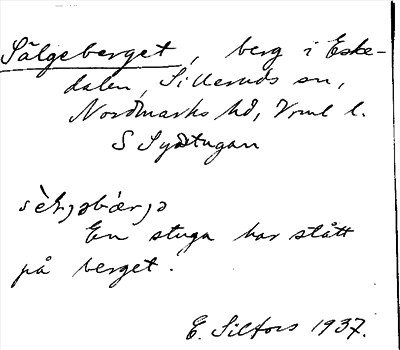 Sälgeberget, berg i Eske-
dalen, Silleruds sn,
Nordmarks hd, Vrml l.
S Sydstugan
En stuga har stått
på berget.
E. Silfors 1937.